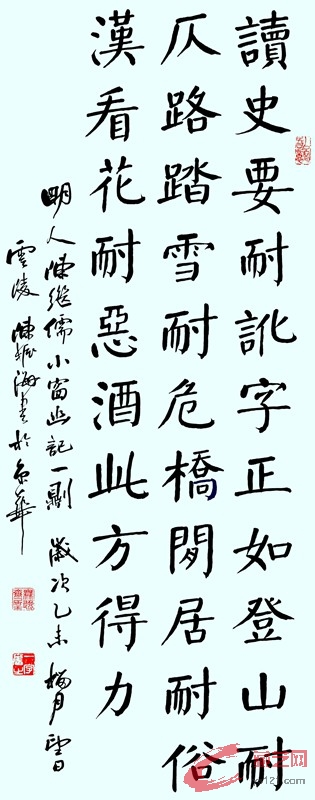 讀史要耐訛字正如登山耐
仄路踏雪耐危橋閒居耐俗
漢看花耐惡酒此方得力
明人陳繼儒小窗幽記一則 歲次乙未 月 日
雲陵 陳 海書於京華